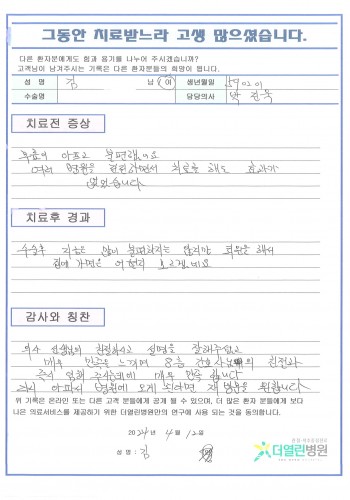 그동안 치료받느라 고생 많으셨습니다.
다른 환자분에게도 힘과 용기를 나누어 주시겠습니까?
고객님이 남겨주시는 기록은 다른 환자분들의 희망이 됩니다.
성 명 김 남 / 여 생년월일 59 02 01
수술명 담당의사 박
치료전 증상
무릎이 아프고 불편했네요
여러 병원을 다니면서 치료를 해도 효과가
없었습니다
치료후 경과
수술후 지금은 많이 불편하지는 않지만 퇴원을 해서
집에 가면은 어떨지 모르겠네요
감사와 칭찬
의사 선생님이 친절하시고 설명을 잘해주셨고
매우 만족을 느끼며 8층 간호사님들의 친절과
즉시 임해 주신데 매우 만족 합니다
다시 아파서 병원에 오게 된다면 재방문을 원합니다
위 기록은 온라인 또는 다른 고객 분들에게 공개 될 수 있으며, 더 많은 환자 분들에게 보다
나은 의료서비스를 제공하기 위한 더열린병원만의 연구에 사용 되는 것을 동의합니다.
2024년 4월 12일
성 명 : 김
더열린병원